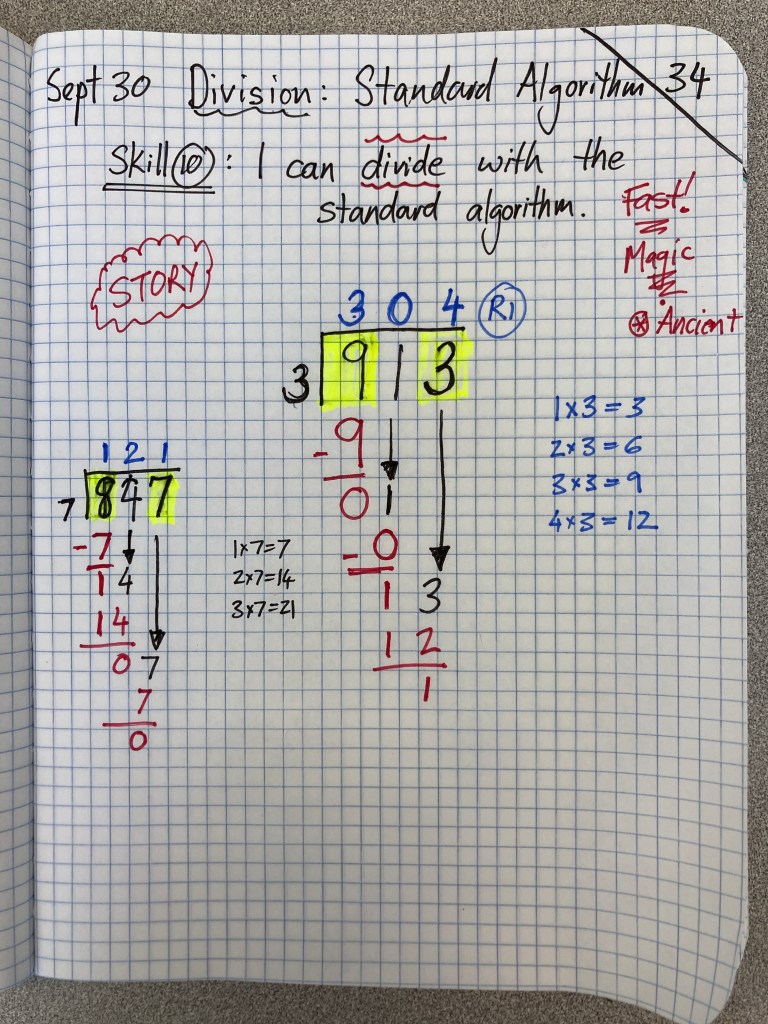 Sept 30 Division: Standard Algorithm 34
Skill 10: I can divide with the
standard algorithm.
Fast!
Magic
Ancient
STORY
3 0 4 R1
3 9 1 3
- 9
0 1
- 0
1 3
1 2
1
1×3=3
2×3=6
3×3=9
4×3=12
1 2 1
7 8 4 7
- 7
1 4
1 4
0 7
7
0
1×7=7
2×7=14
3×7=21